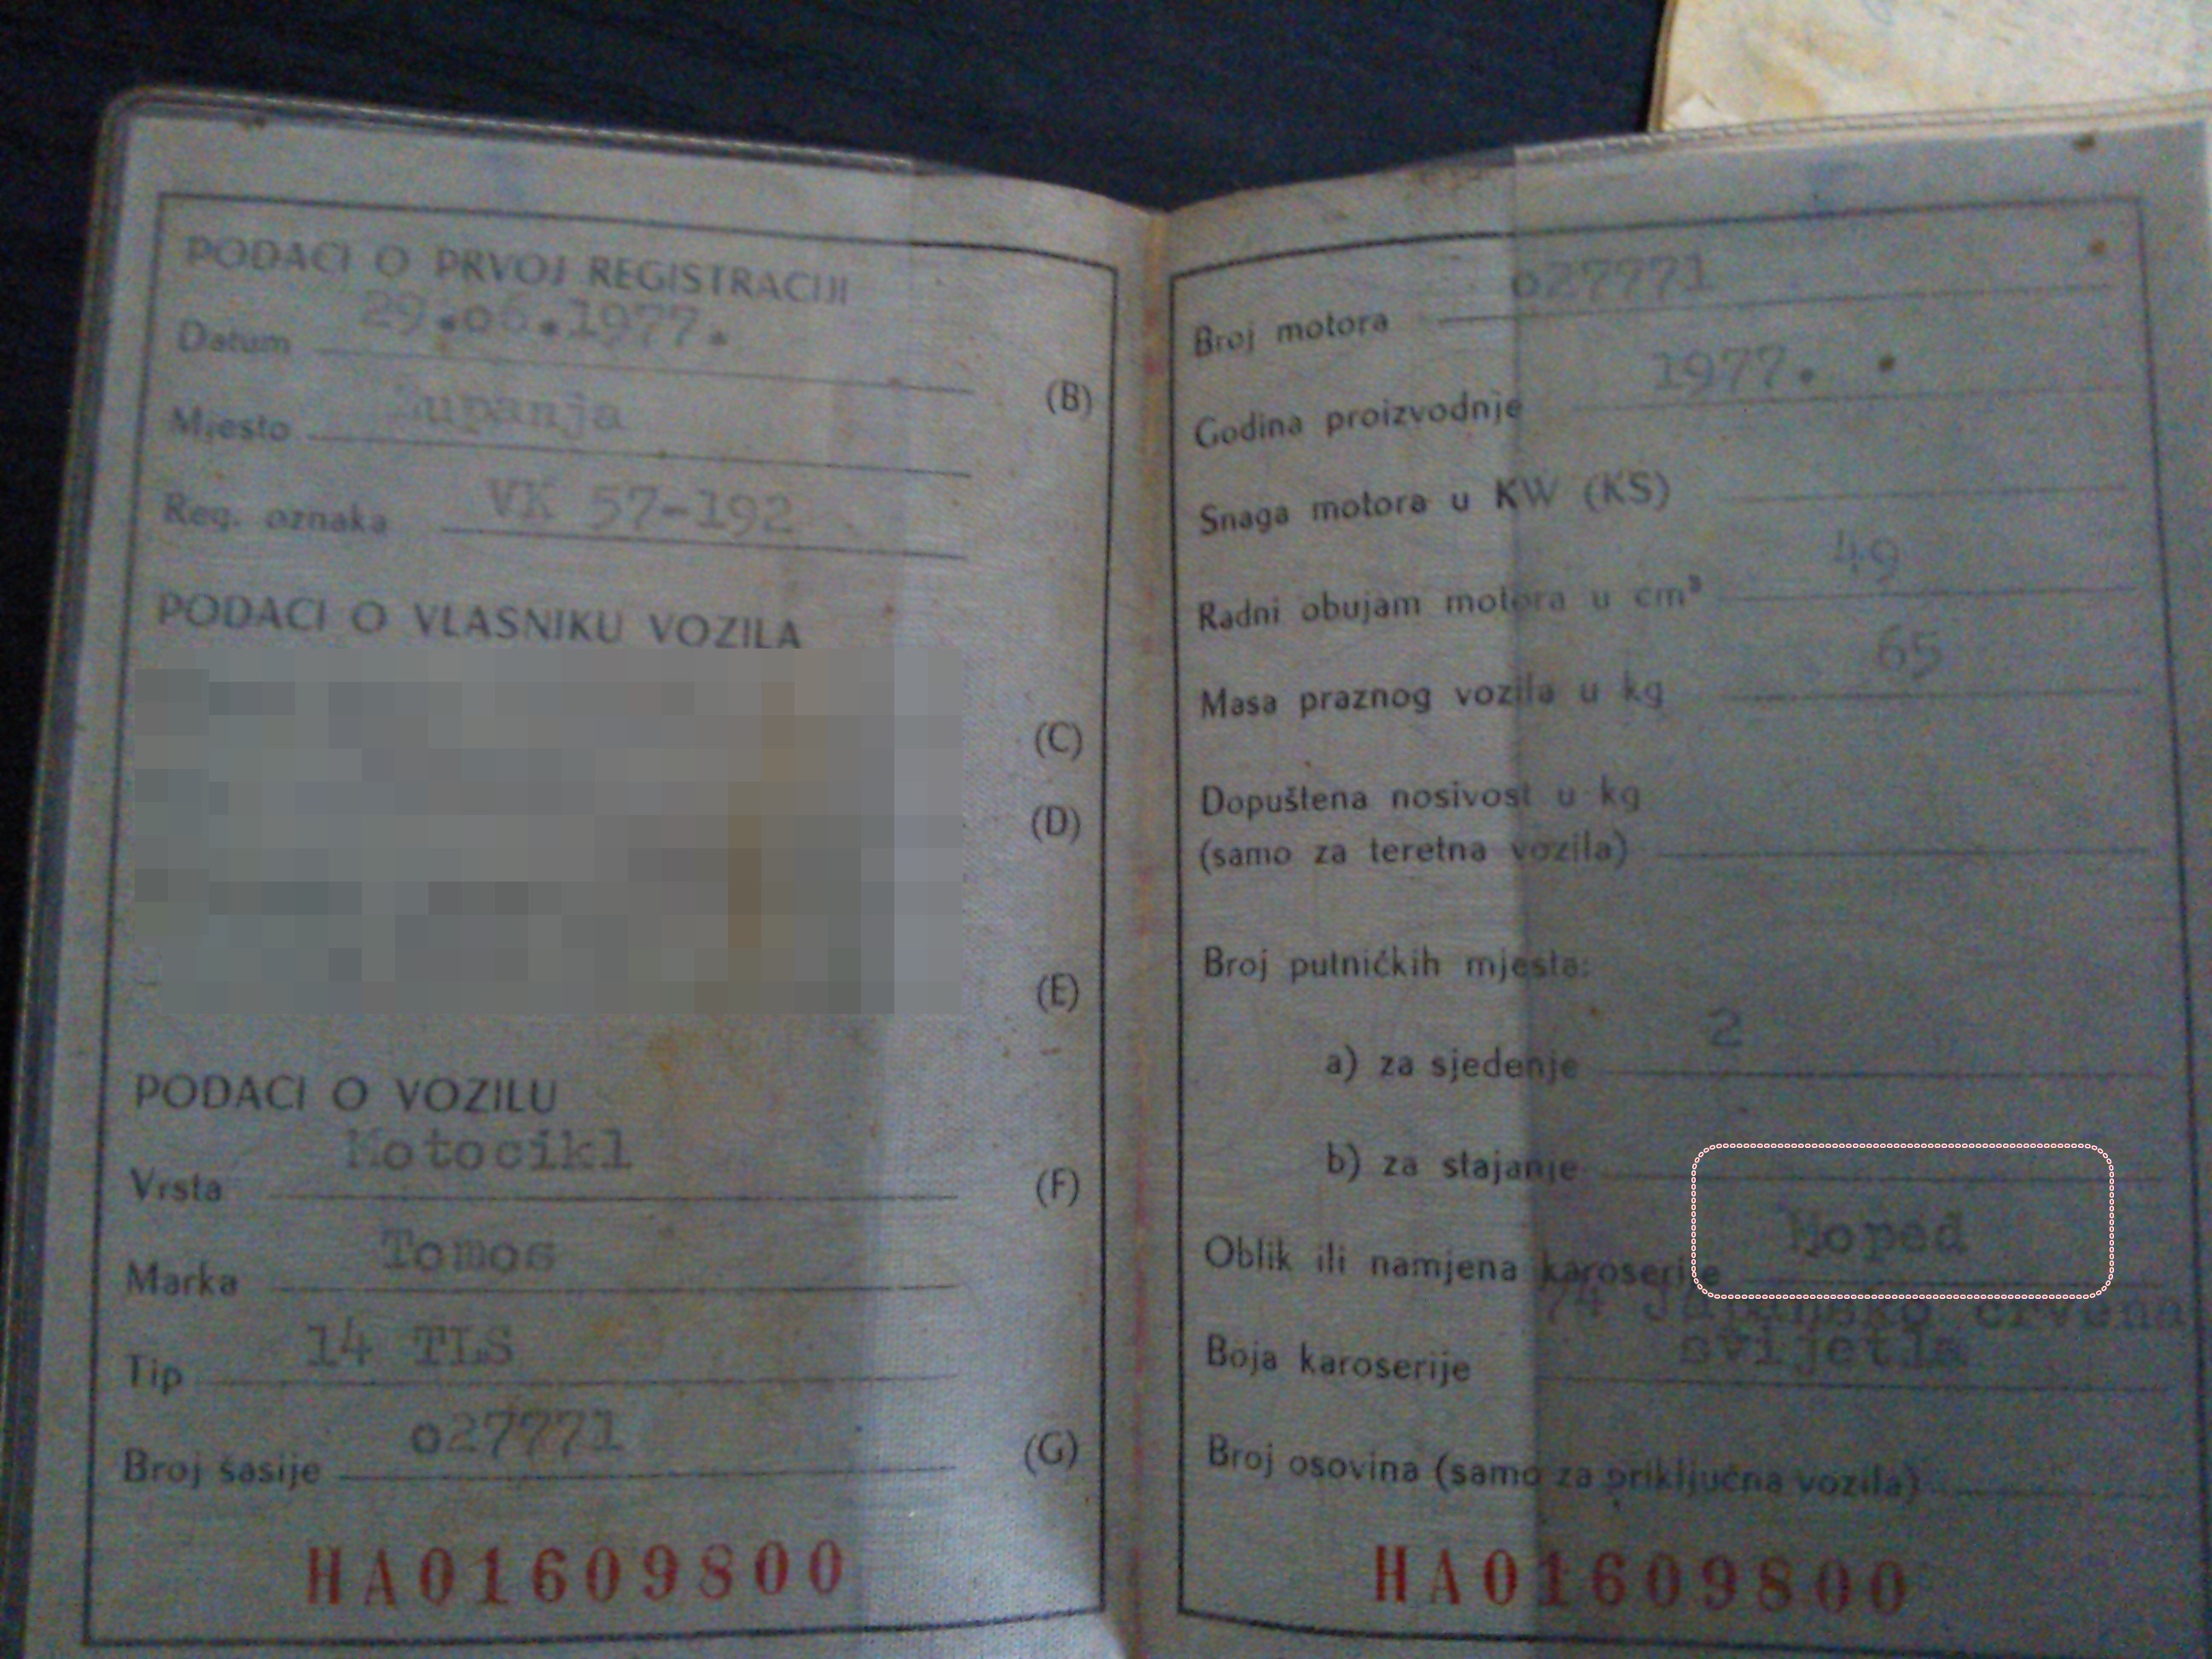 PODACI O PRVOJ REGISTRACIJI
Datum 29.06.1977.
(B)
Mjesto Županja
Reg. oznaka VK 57-192
PODACI O VLASNIKU VOZILA
(C)
(D)
(E)
PODACI O VOZILU
Vrsta Motocikl
(F)
Marka Tomos
Tip 14 TLS
Broj šasije o27771
(G)
HA01609800
Broj motora o27771
Godina proizvodnje 1977.
Snaga motora u KW (KS)
Radni obujam motora u cm³ 49
Masa praznog vozila u kg 65
Dopuštena nosivost u kg
(samo za teretna vozila)
Broj putničkih mjesta:
a) za sjedenje 2
b) za stajanje
Oblik ili namjena karoserije Moped
74 Japansko crvena
Boja karoserije svijetla
Broj osovina (samo za priključna vozila)
HA01609800